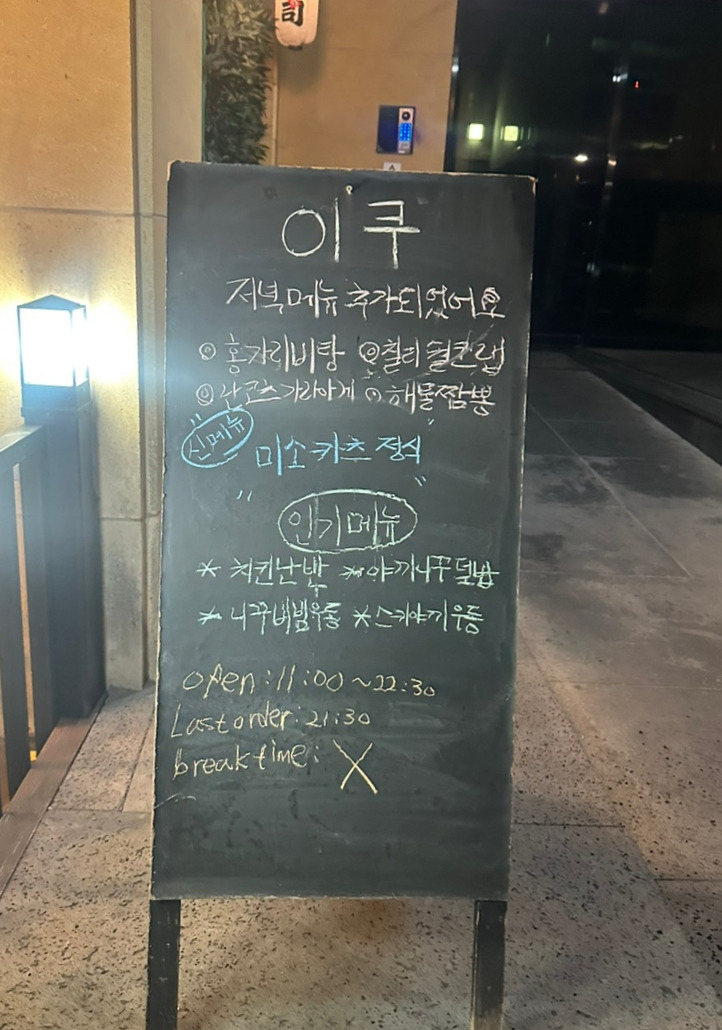 司
이쿠
저녁메뉴 추가되었어요
◎ 홍자리비탕 ◎ 칠리 월컨랩
◎ 난코스가라아게 ◎ 해물짬뽕
신메뉴
미소카츠 정식
"인기메뉴"
* 치킨난반 * 야끼니꾸덮밥
* 니꾸비빔우동 * 스키야끼우동
open : 11:00 ~ 22:30
Last order : 21:30
break time : X